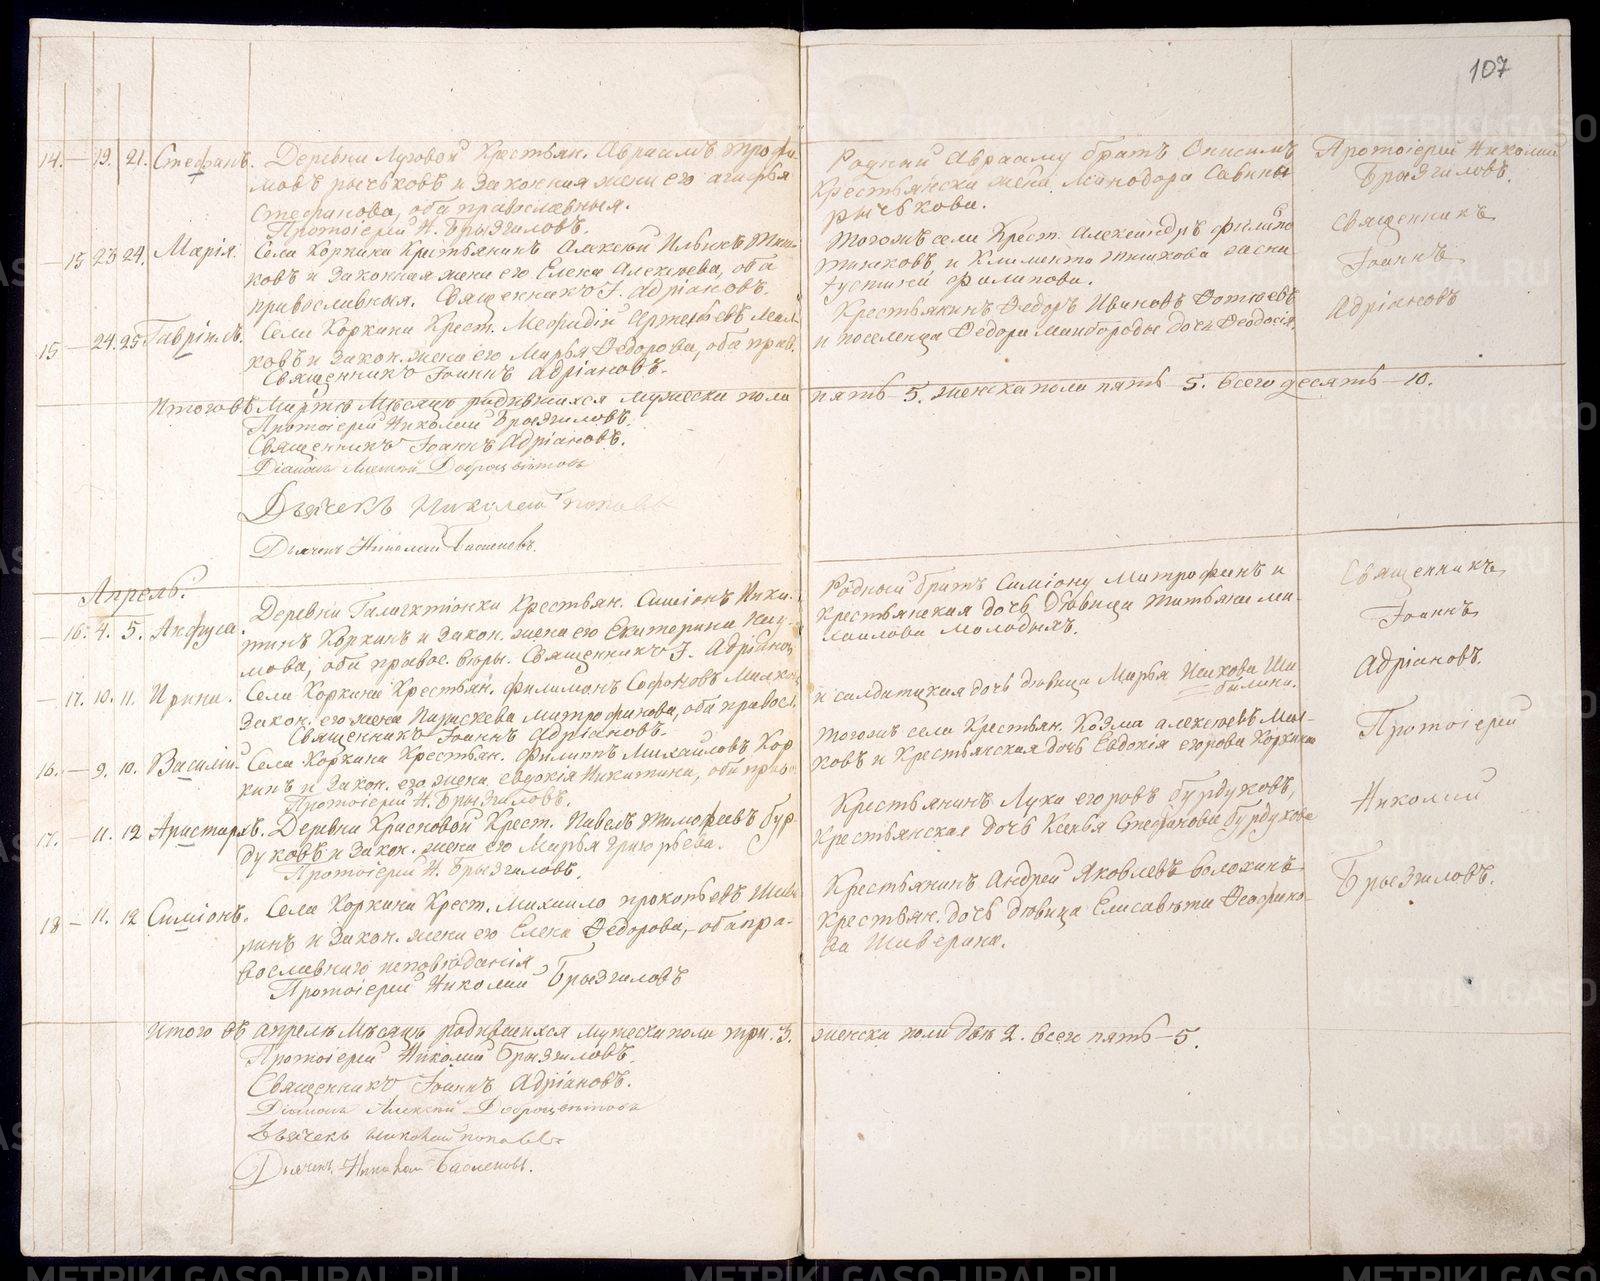 107
14. — 19. 21. Стефанъ. Деревни Луговой Крестьян. Авраамъ Трофи-
мовъ Рычьковъ и Законная жена его Агафья
Стефанова, оба православныя.
Протоіерей Н. Брызгаловъ.
Родный Аврааму братъ Онисимъ
Крестьянска жена Минодора Савина
Рычькова.
Протоіерей Николай
Брызгаловъ.
— 15 23 24. Марія. Села Коркина Крестьянинъ Алексей Ильинъ
ковъ и Законная жена его Елена Алексеева, оба
православныя. Священникъ І. Адріановъ.
Тогожъ села Крест. Александръ Филипо
и Климента
Филипова.
Священникъ
Іоаннъ
Адріановъ
15 — 24. 25. Гавріилъ. Села Коркина Крест. Мефодій Артемьевъ Мал-
ковъ и Закон. жена его Марья Федорова, оба прав.
Священникъ Іоаннъ Адріановъ.
Крестьянинъ Федоръ Ивановъ
и поселенца Федора дочь Феодосія.
Итого въ Марте Месяце родившихся мужеска пола
пять — 5. женска пола пять — 5. всего десять — 10.
Протоіерей Николай Брызгаловъ.
Священникъ Іоаннъ Адріановъ.
Діаконъ Алексей Доброцветовъ
Дьячекъ Николай Поповъ
Дьячек Николай
Апрель.
— 16. 4. 5. Анфуса. Деревни Крестьян. Симіонъ Ники-
тинъ Коркинъ и Закон. жена его Екатерина
мова, оба правос. веры. Священникъ І. Адріанов
Родный братъ Симіону Митрофанъ и
Крестьянская дочь девица Татьяна Ми-
хаилова Молодыхъ.
Священникъ
Іоаннъ
Адріановъ.
— 17. 10. 11. Ирина. Села Коркина Крестьян. Филимонъ Софоновъ Малков
Закон. его жена Параскева Митрофанова, оба правосл.
Священникъ Іоаннъ Адріановъ.
и салдатская дочь девица Марья
16. — 9. 10. Василій. Села Коркина Крестьян. Филипъ Михаиловъ Кор
кинъ и Закон. его жена Евдокія Никитина, оба право
Протоіерей Н. Брызгаловъ.
Тогожъ села Крестьян. Козма Алексеевъ Мал-
ковъ и Крестьянская дочь Евдокія Егорова Коркина
Протоіерей
Николай
Брызгаловъ.
17. — 11. 12 Аристархъ. Деревни Красновой Крест. Павелъ Тимофеевъ Бур-
дуковъ и Закон. жена его Марья Григорьева.
Протоіерей Н. Брызгаловъ.
Крестьянинъ Лука Егоровъ Бурдуковъ,
Крестьянская дочь Ксенья Стефанова Бурдукова
18 — 11. 12 Симіонъ. Села Коркина Крест. Михаило Прокопьевъ Шаве
ринъ и Закон. жена его Елена Федорова, — оба пра-
вославнаго исповеданія
Протоіерей Николай Брызгаловъ
Крестьянинъ Андрей Яковлевъ Волохинъ
Крестьян. дочь девица Елисавета Феофано-
ва Шаверина.
Итого въ Апреле Месяце родившихся мужеска пола три. 3.
женска пола две 2. всего пять — 5.
Протоіерей Николай Брызгаловъ.
Священникъ Іоаннъ Адріановъ.
Діаконъ Алексей Доброцветовъ
Дьячекъ Николай Поповъ
Дьячек Николай
METRIKI.GASO-URAL.RU